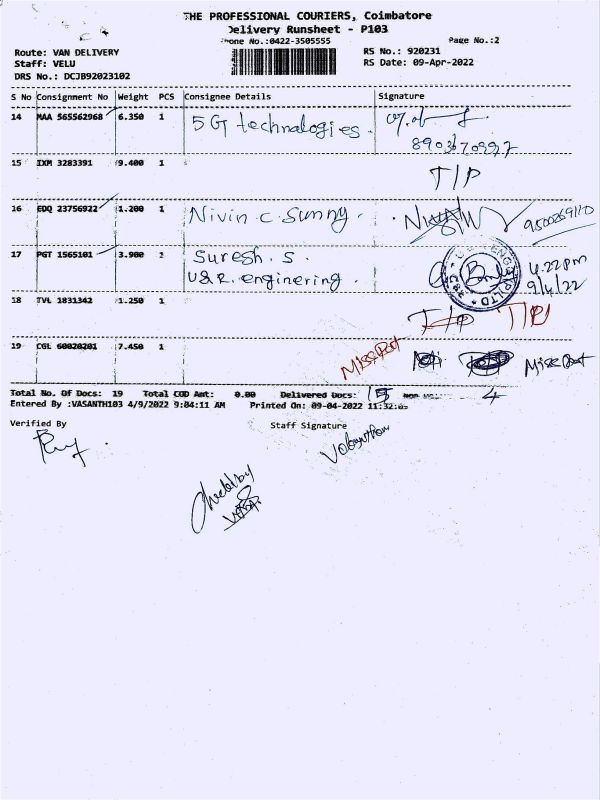 THE PROFESSIONAL COURIERS, Coimbatore
Delivery Runsheet - P103
Phone No.:0422-3505555
Page No.:2
Route: VAN DELIVERY
RS No.: 920231
Staff: VELU
RS Date: 09-Apr-2022
DRS No.: DCJB92023102
S No Consignment No Weight PCS Consignee Details Signature
14 MAA 565562968 6.350 1 5G technalogies.
15 IXM 3283391 9.400 1 T/P
16 EDQ 23756922 1.200 1 Nivin C. Sunny. 9500269110
17 PGT 1565101 3.900 1 Suresh. S.
U&R. enginering. 4.22pm
9/4/22
18 TVL 1831342 1.250 1 T/P T/P
19 CGL 60020201 7.450 1 Miss Rot Miss Rot
Total No. Of Docs: 19 Total COD Amt: 0.00 Delivered Docs: 15 4
Entered By :VASANTH103 4/9/2022 9:04:11 AM Printed On: 09-04-2022
Verified By
Staff Signature